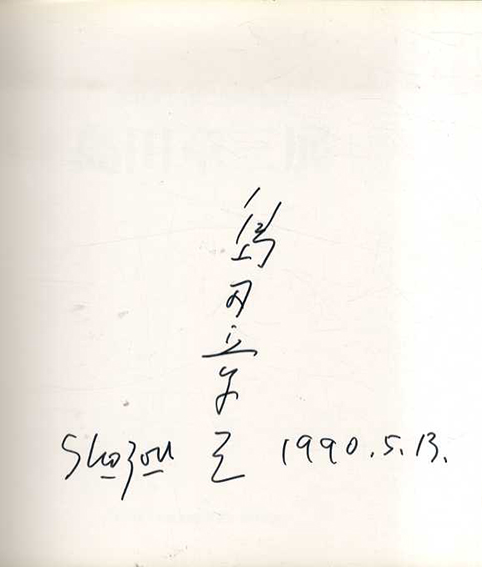 島田章三
Shozou 1990.5.13.